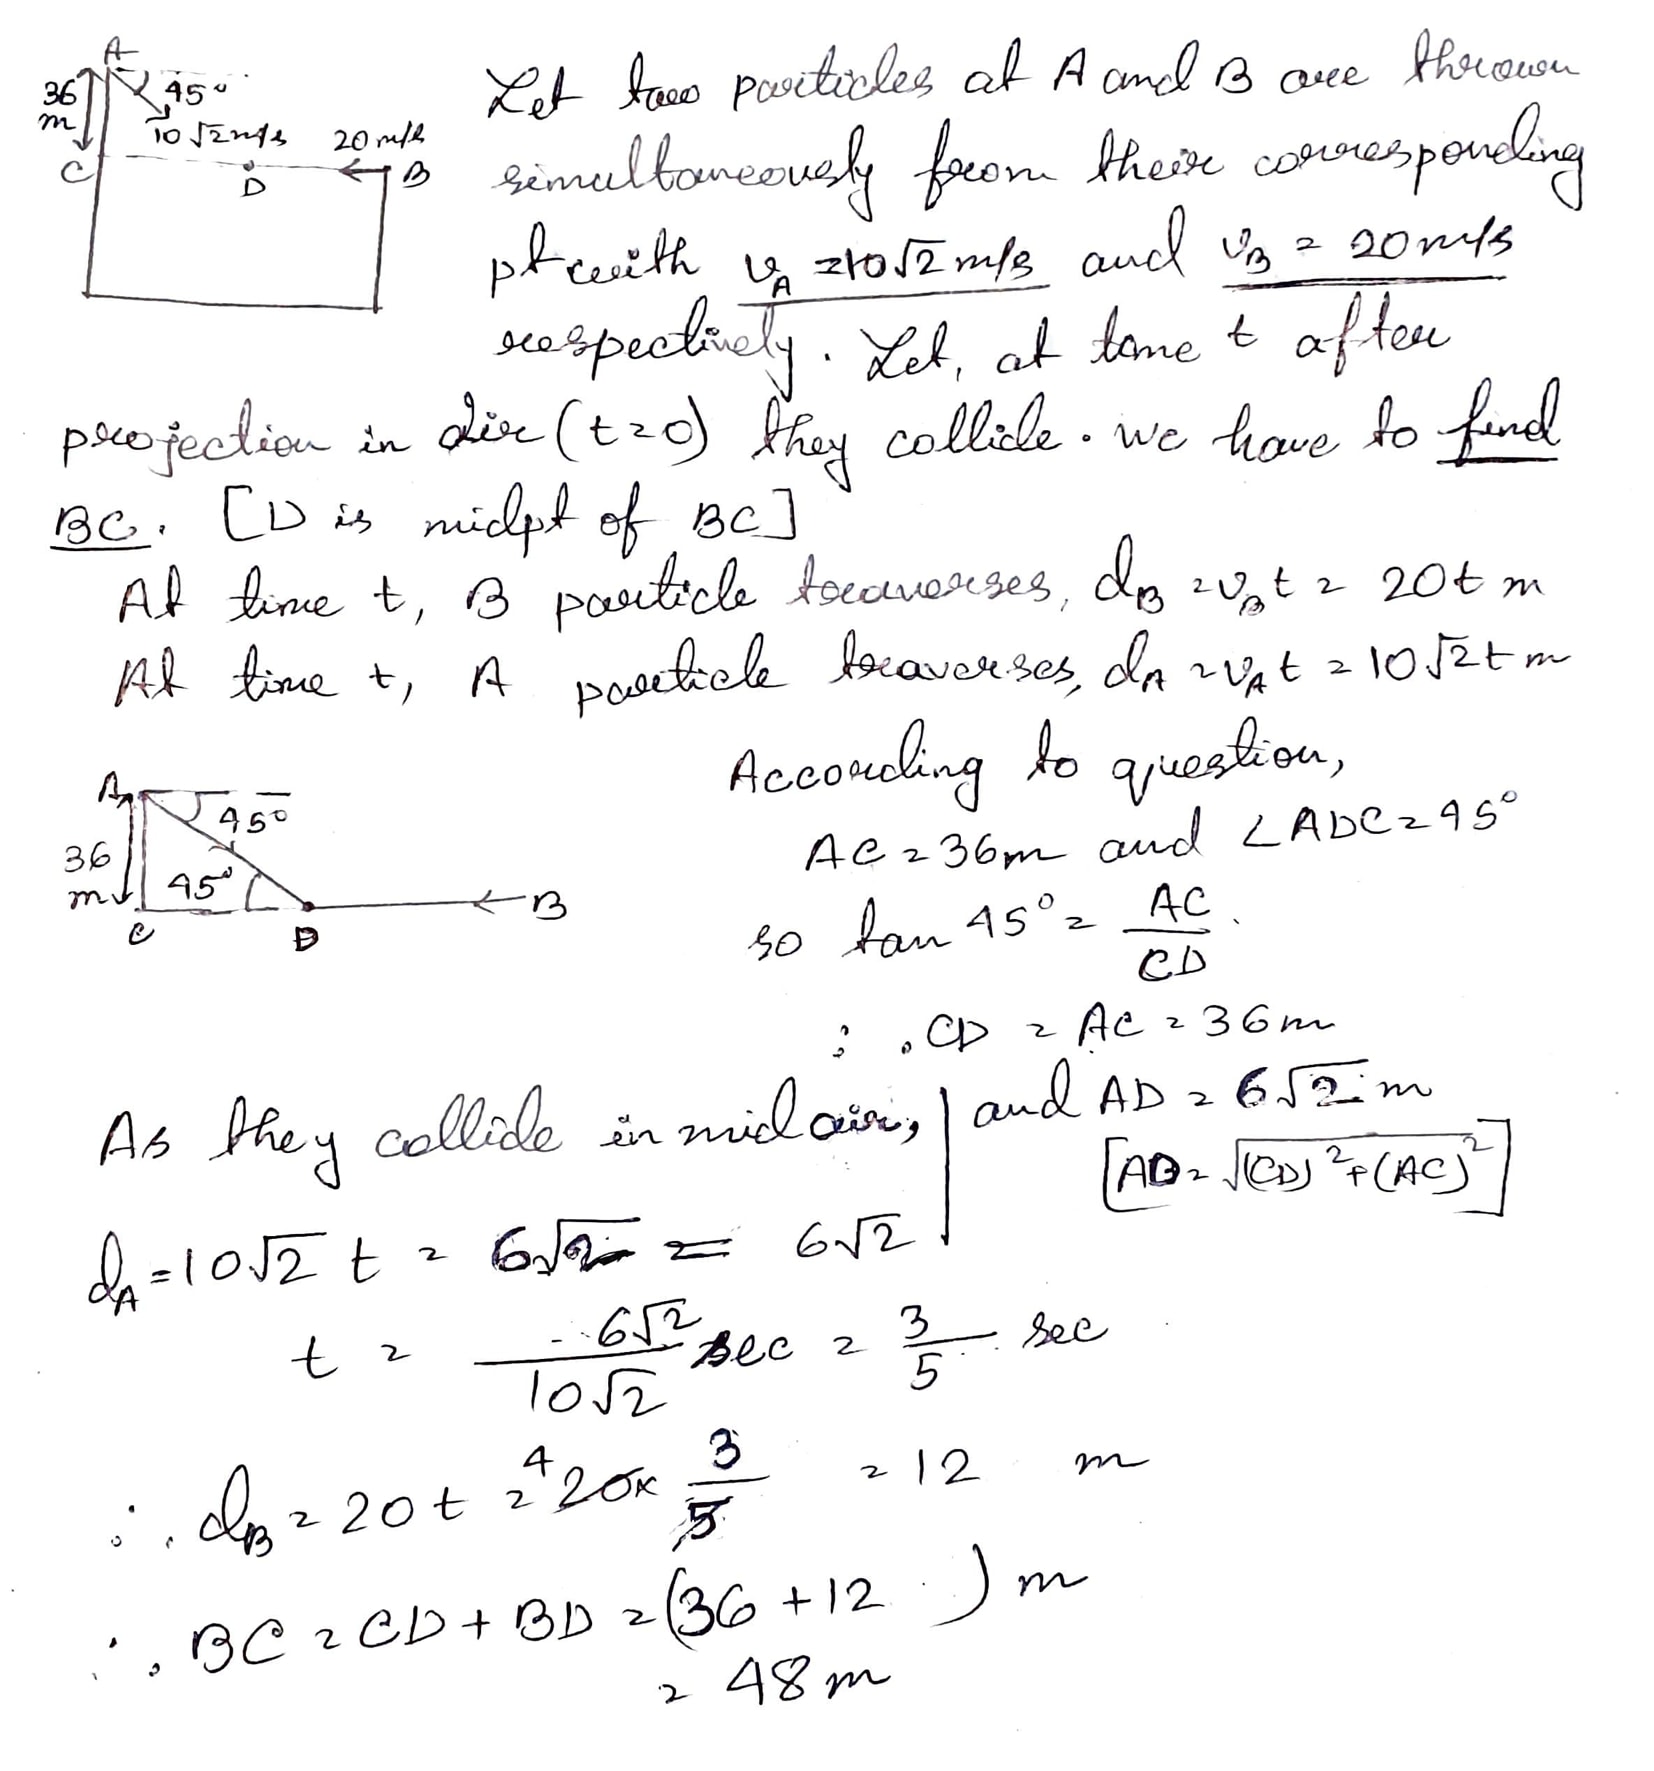 A
36 m
45°
10√2 m/s
20 m/s
C
D
B
Let two particles at A and B are thrown
simultaneously from their corresponding
pt with v_A = 10√2 m/s and v_B = 20 m/s
respectively. Let, at time t after
projection in dir (t=0) they collide. we have to find
BC. [D is midpt of BC]
At time t, B particle traverses, d_B = v_B t = 20t m
At time t, A particle traverses, d_A = v_A t = 10√2 t m
According to question,
A
45°
36 m
45°
C
D
B
AC = 36m and ∠ADC = 45°
so tan 45° = AC/CD
∴ CD = AC = 36m
and AD = 6√2 m
[AD = √(CD)²+(AC)²]
As they collide in mid air,
d_A = 10√2 t = 6√2 = 6√2
t = 6√2/10√2 sec = 3/5 sec
∴ d_B = 20t = 20 x 3/5 = 12 m
4
∴ BC = CD + BD = (36 + 12 ) m
= 48 m